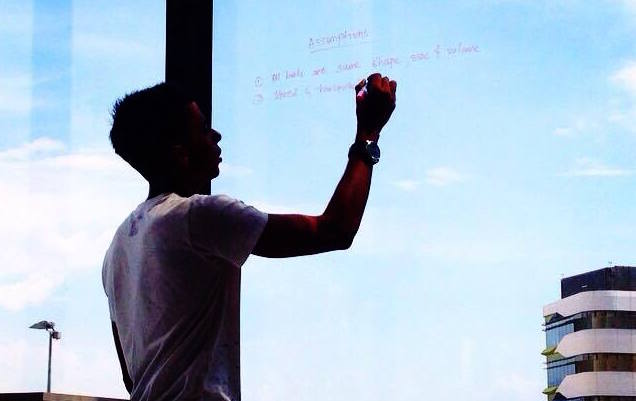 Assumptions
① All balls are same shape, size & volume
② Speed &